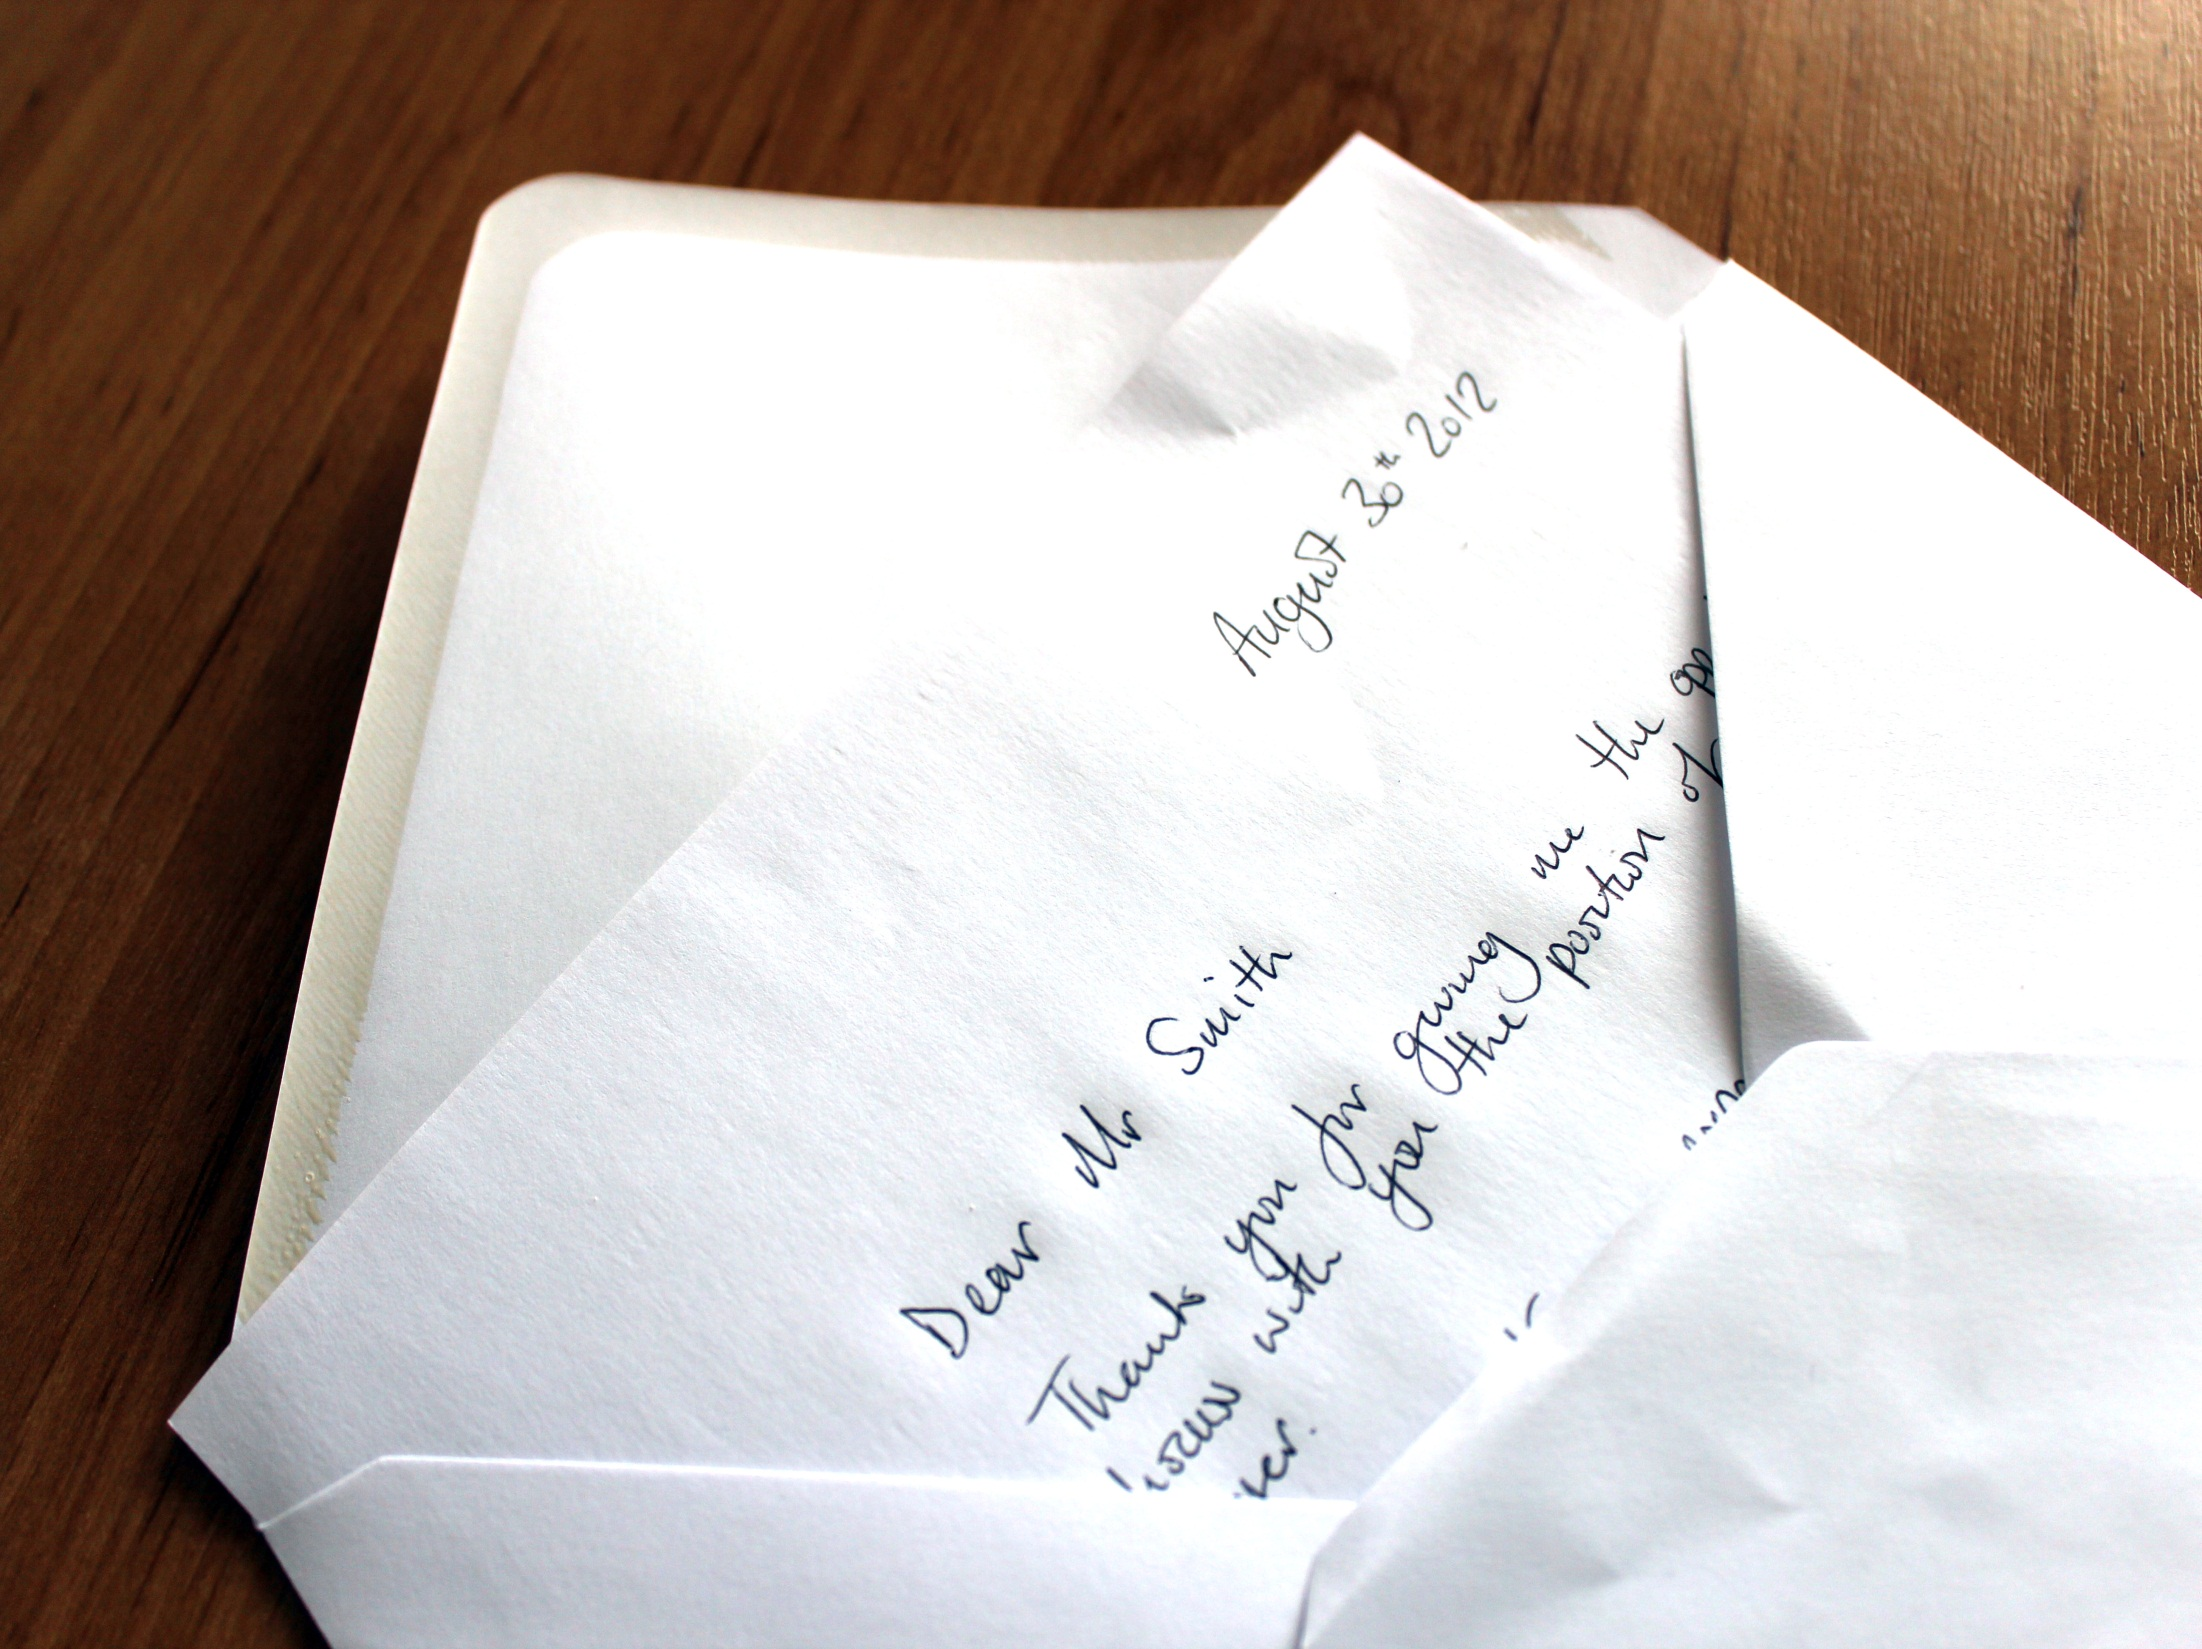 August 30th 2012
Dear Mr Smith
Thank you for giving me the
with you the position of